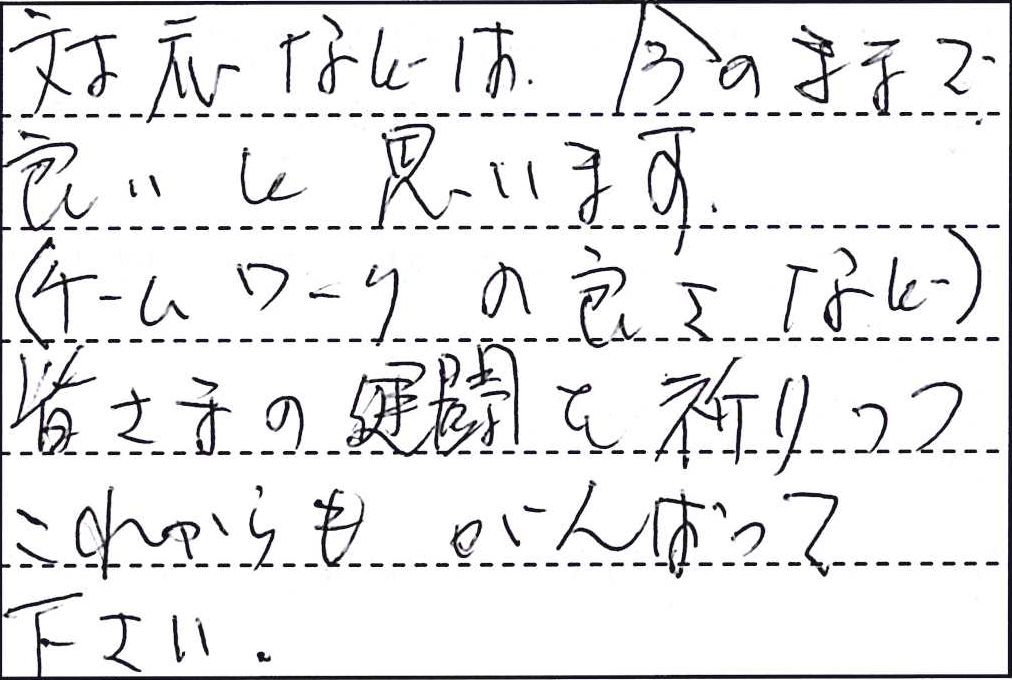 対応などは、今のままで
良いと思います。
(チームワークの良さなど)
皆さまの健闘を祈りつつ
これからも がんばって
下さい。